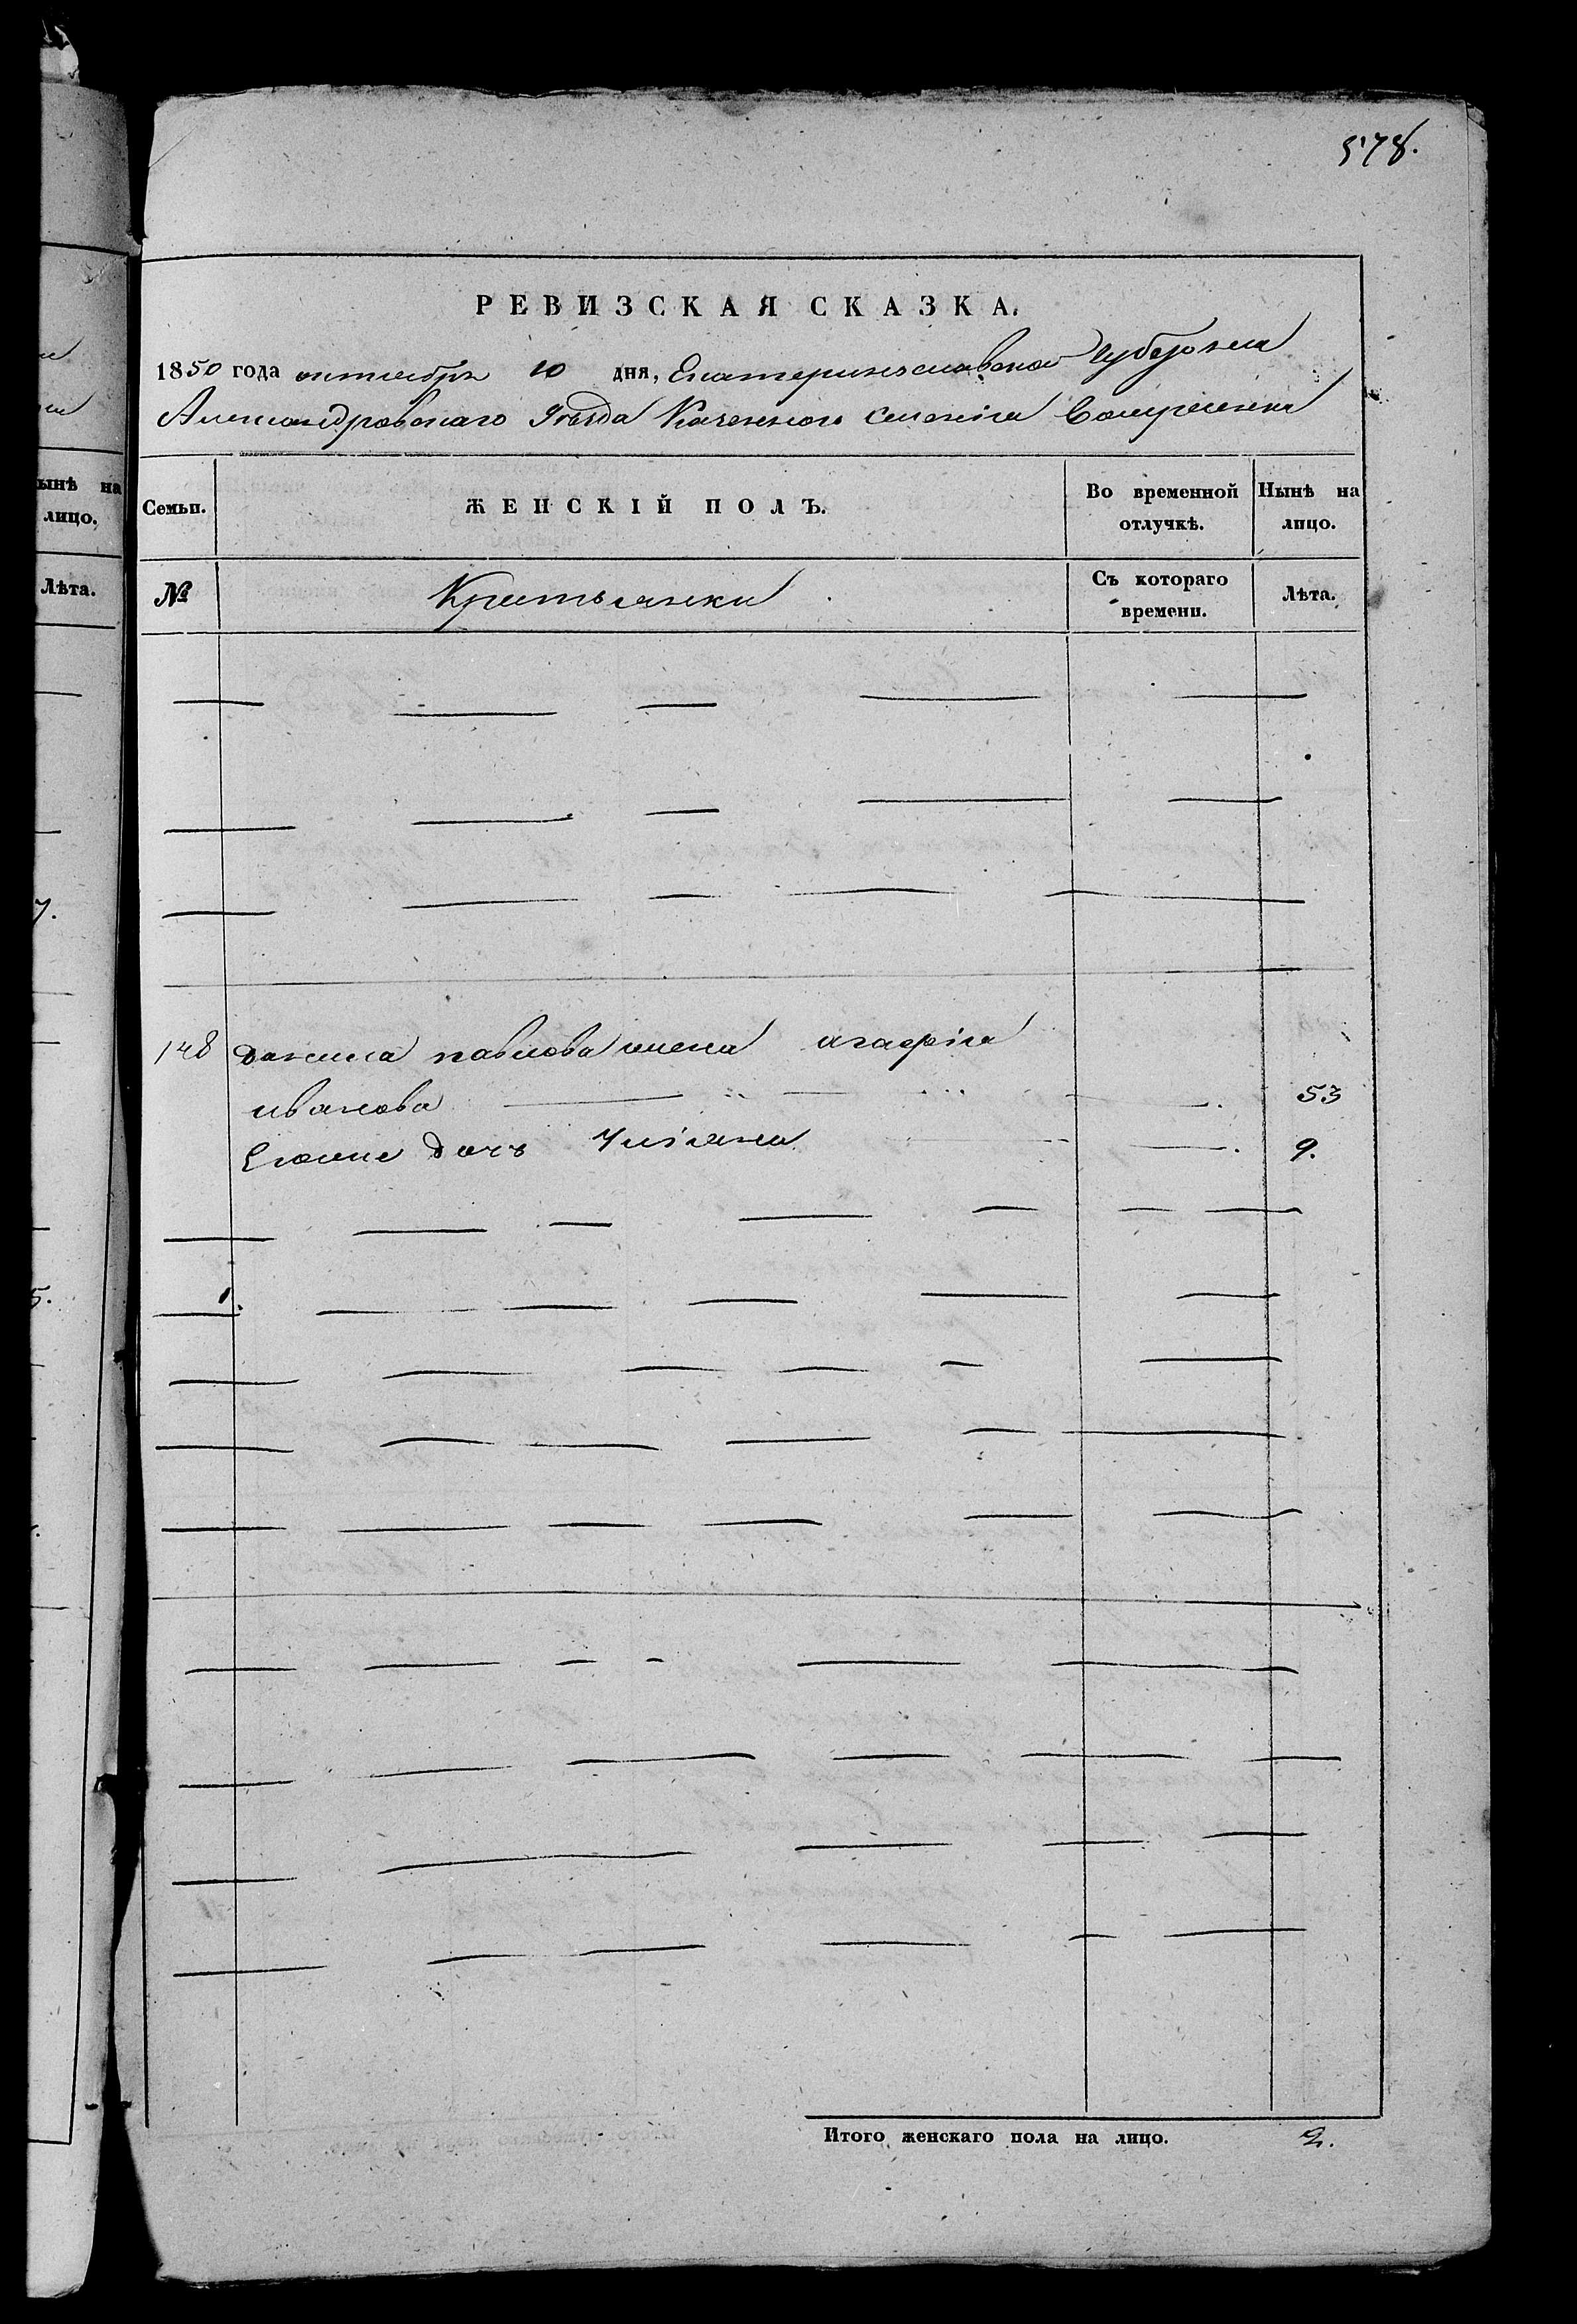 578.
РЕВИЗСКАЯ СКАЗКА.
1850 года октября 10 дня, Екатеринославской Губернии
Александровскаго Уезда Казенного Селенія
Семьи.
ЖЕНСКІЙ ПОЛЪ.
Во временной отлучкѣ.
Нынѣ на лицо.
№
Крестьянки
Съ котораго времени.
Лѣта.
148 Данила павлова жена агафія
иванова 53
Егоже дочь Уліяна 9.
Итого женскаго пола на лицо. 2.
ынѣ на
лицо.
Лѣта.
7.
5.